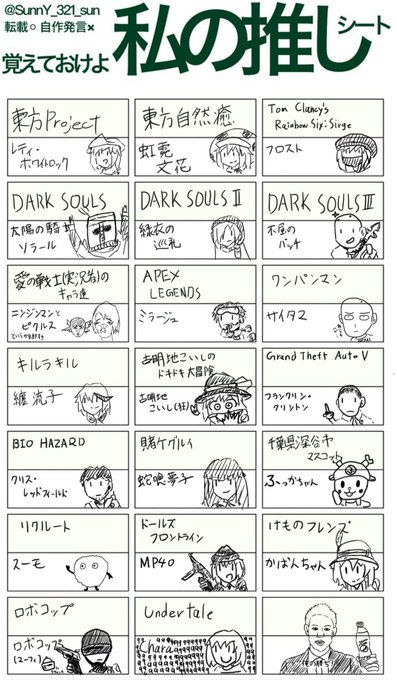 @SunnY_321_sun
転載○ 自作発言×
覚えておけよ
私の推しシート
東方Project
レティ・
ホワイトロック
東方自然癒
虹霓
文花
Tom Clancy's
Rainbow Six: Sirge
フロスト
DARK SOULS
太陽の騎士
ソラール
DARK SOULS II
緑衣の
巡礼
DARK SOULS III
不屈の
パッチ
愛の戦士(実況者)の
キャラ達
ニンジンマンと
ピクルス
APEX
LEGENDS
ミラージュ
ワンパンマン
サイタマ
キルラキル
纏 流子
古明地こいしの
ドキドキ大冒険
古明地
こいし(狂)
Grand Theft Auto V
フランクリン・
クリントン
BIO HAZARD
クリス・
レッドフィールド
賭ケグルイ
蛇喰夢子
千葉県深谷市
マスコット
ふっかちゃん
リクルート
スーモ
ドールズ
フロントライン
MP40
けものフレンズ
かばんちゃん
ロボコップ
ロボコップ
(マーフィ)
Undertale
Chara
俺の勝ち!